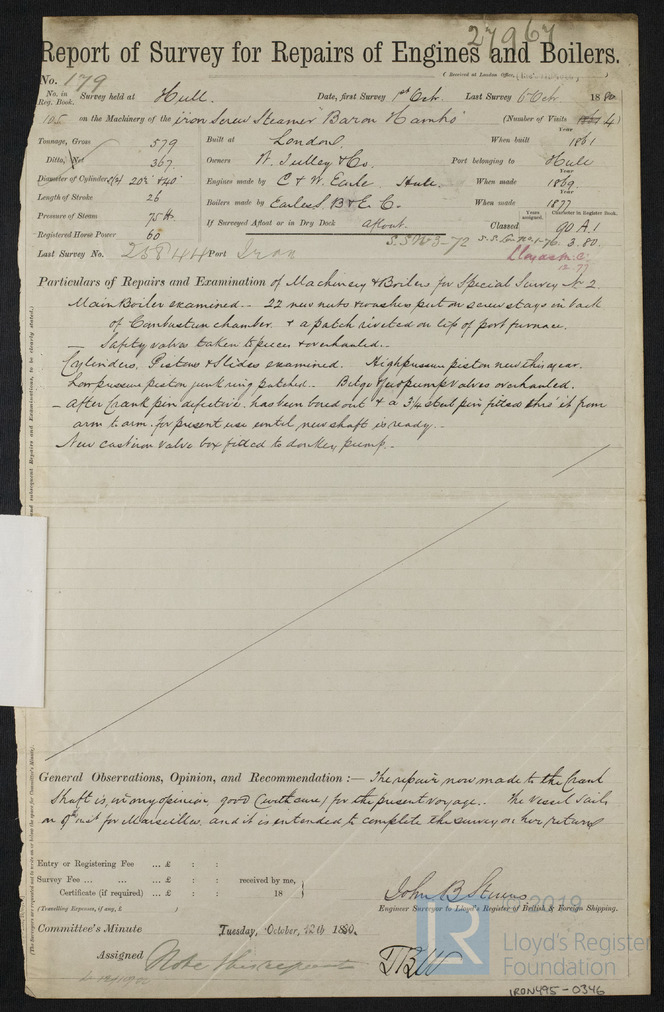 27967
Report of Survey for Repairs of Engines and Boilers.
No. 179
(Received at London Office,
No. in Reg. Book. Survey held at Hull. Date, first Survey 1st Octr. Last Survey 6 Octr 1880
105 on the Machinery of the iron Screw Steamer "Baron Hambro" (Number of Visits 4)
Tonnage, Gross 579 Built at London. When built Year 1861
Ditto, Net 367 Owners W. Tulley & Co. Port belonging to Hull
Diameter of Cylinders 20" & 40" Engines made by C & W. Earle Hull. When made Year 1869
Length of Stroke 26 Boilers made by Earles S. B & E. Co. When made Year 1877
Pressure of Steam 75 lb If Surveyed Afloat or in Dry Dock afloat. Classed Years assigned. Character in Register Book. 90 A.1
Registered Horse Power 60 3.80.
Last Survey No. 25844 Port Iron Lloyds M.C.
12.77
Particulars of Repairs and Examination of Machinery & Boilers for Special Survey No 2
Main Boiler examined. 22 new nuts & washers put on screw stays in back
of Combustion chamber. & a patch riveted on lip of port furnace.
Safety valves taken to pieces & overhauled.
Cylinders, Pistons & Slides examined. High pressure piston new this year.
Low pressure piston junk ring patched. Bilge & air pump valves overhauled.
After Crank pin defective, has been bored out & a 3¼ steel pin fitted thro' it from
arm to arm. for present use until new shaft is ready.
New cast iron valve box fitted to donkey pump.
and subsequent Repairs and Examinations, to be clearly stated.
General Observations, Opinion, and Recommendation :— The repair now made to the Crank
Shaft is, in my opinion, good (with care) for the present voyage. The vessel sails
on 9th inst for Marseilles, and it is intended to complete the survey on her return
(The Surveyors are requested not to write on or below the space for Committee's Minute.)
Entry or Registering Fee ... £ : :
Survey Fee ... ... ... £ : : received by me,
Certificate (if required) ... £ : : 18
(Travelling Expenses, if any, £ )
John B Stevens
Engineer Surveyor to Lloyd's Register of British & Foreign Shipping.
Committee's Minute Tuesday, October, 12th 1880.
Assigned Note this report
TBW
2019
LR
Lloyd's Register
Foundation
IRON495-0346